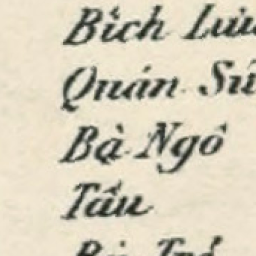 Bích Lưu
Quán Sứ
Bà Ngô
Tầu
Bà Trẻ